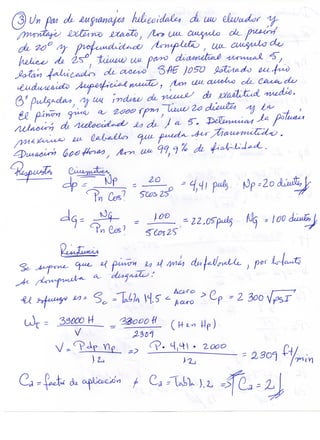 ③ Un par de engranajes helicoidales de un elevador y
montaje externo exacto, con un angulo de presión
de 20° y profundidad completa, un angulo de
helice de 25°, tienen un paso diametral normal 5,
están fabricados de acero SAE 1050 estirado en frio
endurecido superficialmente, con un ancho de cara de
3 pulgadas, y un indice de nivel de exactitud medio.
El piñón gira a 2000 rpm, tiene 20 dientes y la
relación de velocidad es de 1 a 5. Determinar la potencia
maxima en caballos que puede ser transmitida.
Duración 600 Horas, con un 99,9% de fiabilidad.
Respuesta Cinematica
dp = Np / Pn Cos? = 20 / 5 cos 25° = 4,41 pulg Np = 20 dientes
dG = NG / Pn Cos? = 100 / 5 cos 25 = 22.05 pulg NG = 100 dientes
Se supone que el piñon es el más desfavorable, por lo tanto
se comprueba a desgaste:
el esfuerzo es = Sc = Tabla 14.5 < Acero Acero > Cp = 2 300 √PSI
Wt = 33000 H / V = 33000 H / 2309 (H en Hp)
V = P dp np / 12 => P · 4,41 · 2000 / 12 = 2309 ft/min
Ca = factor de aplicación Ca = Tabla 1.2 => Ca = 2